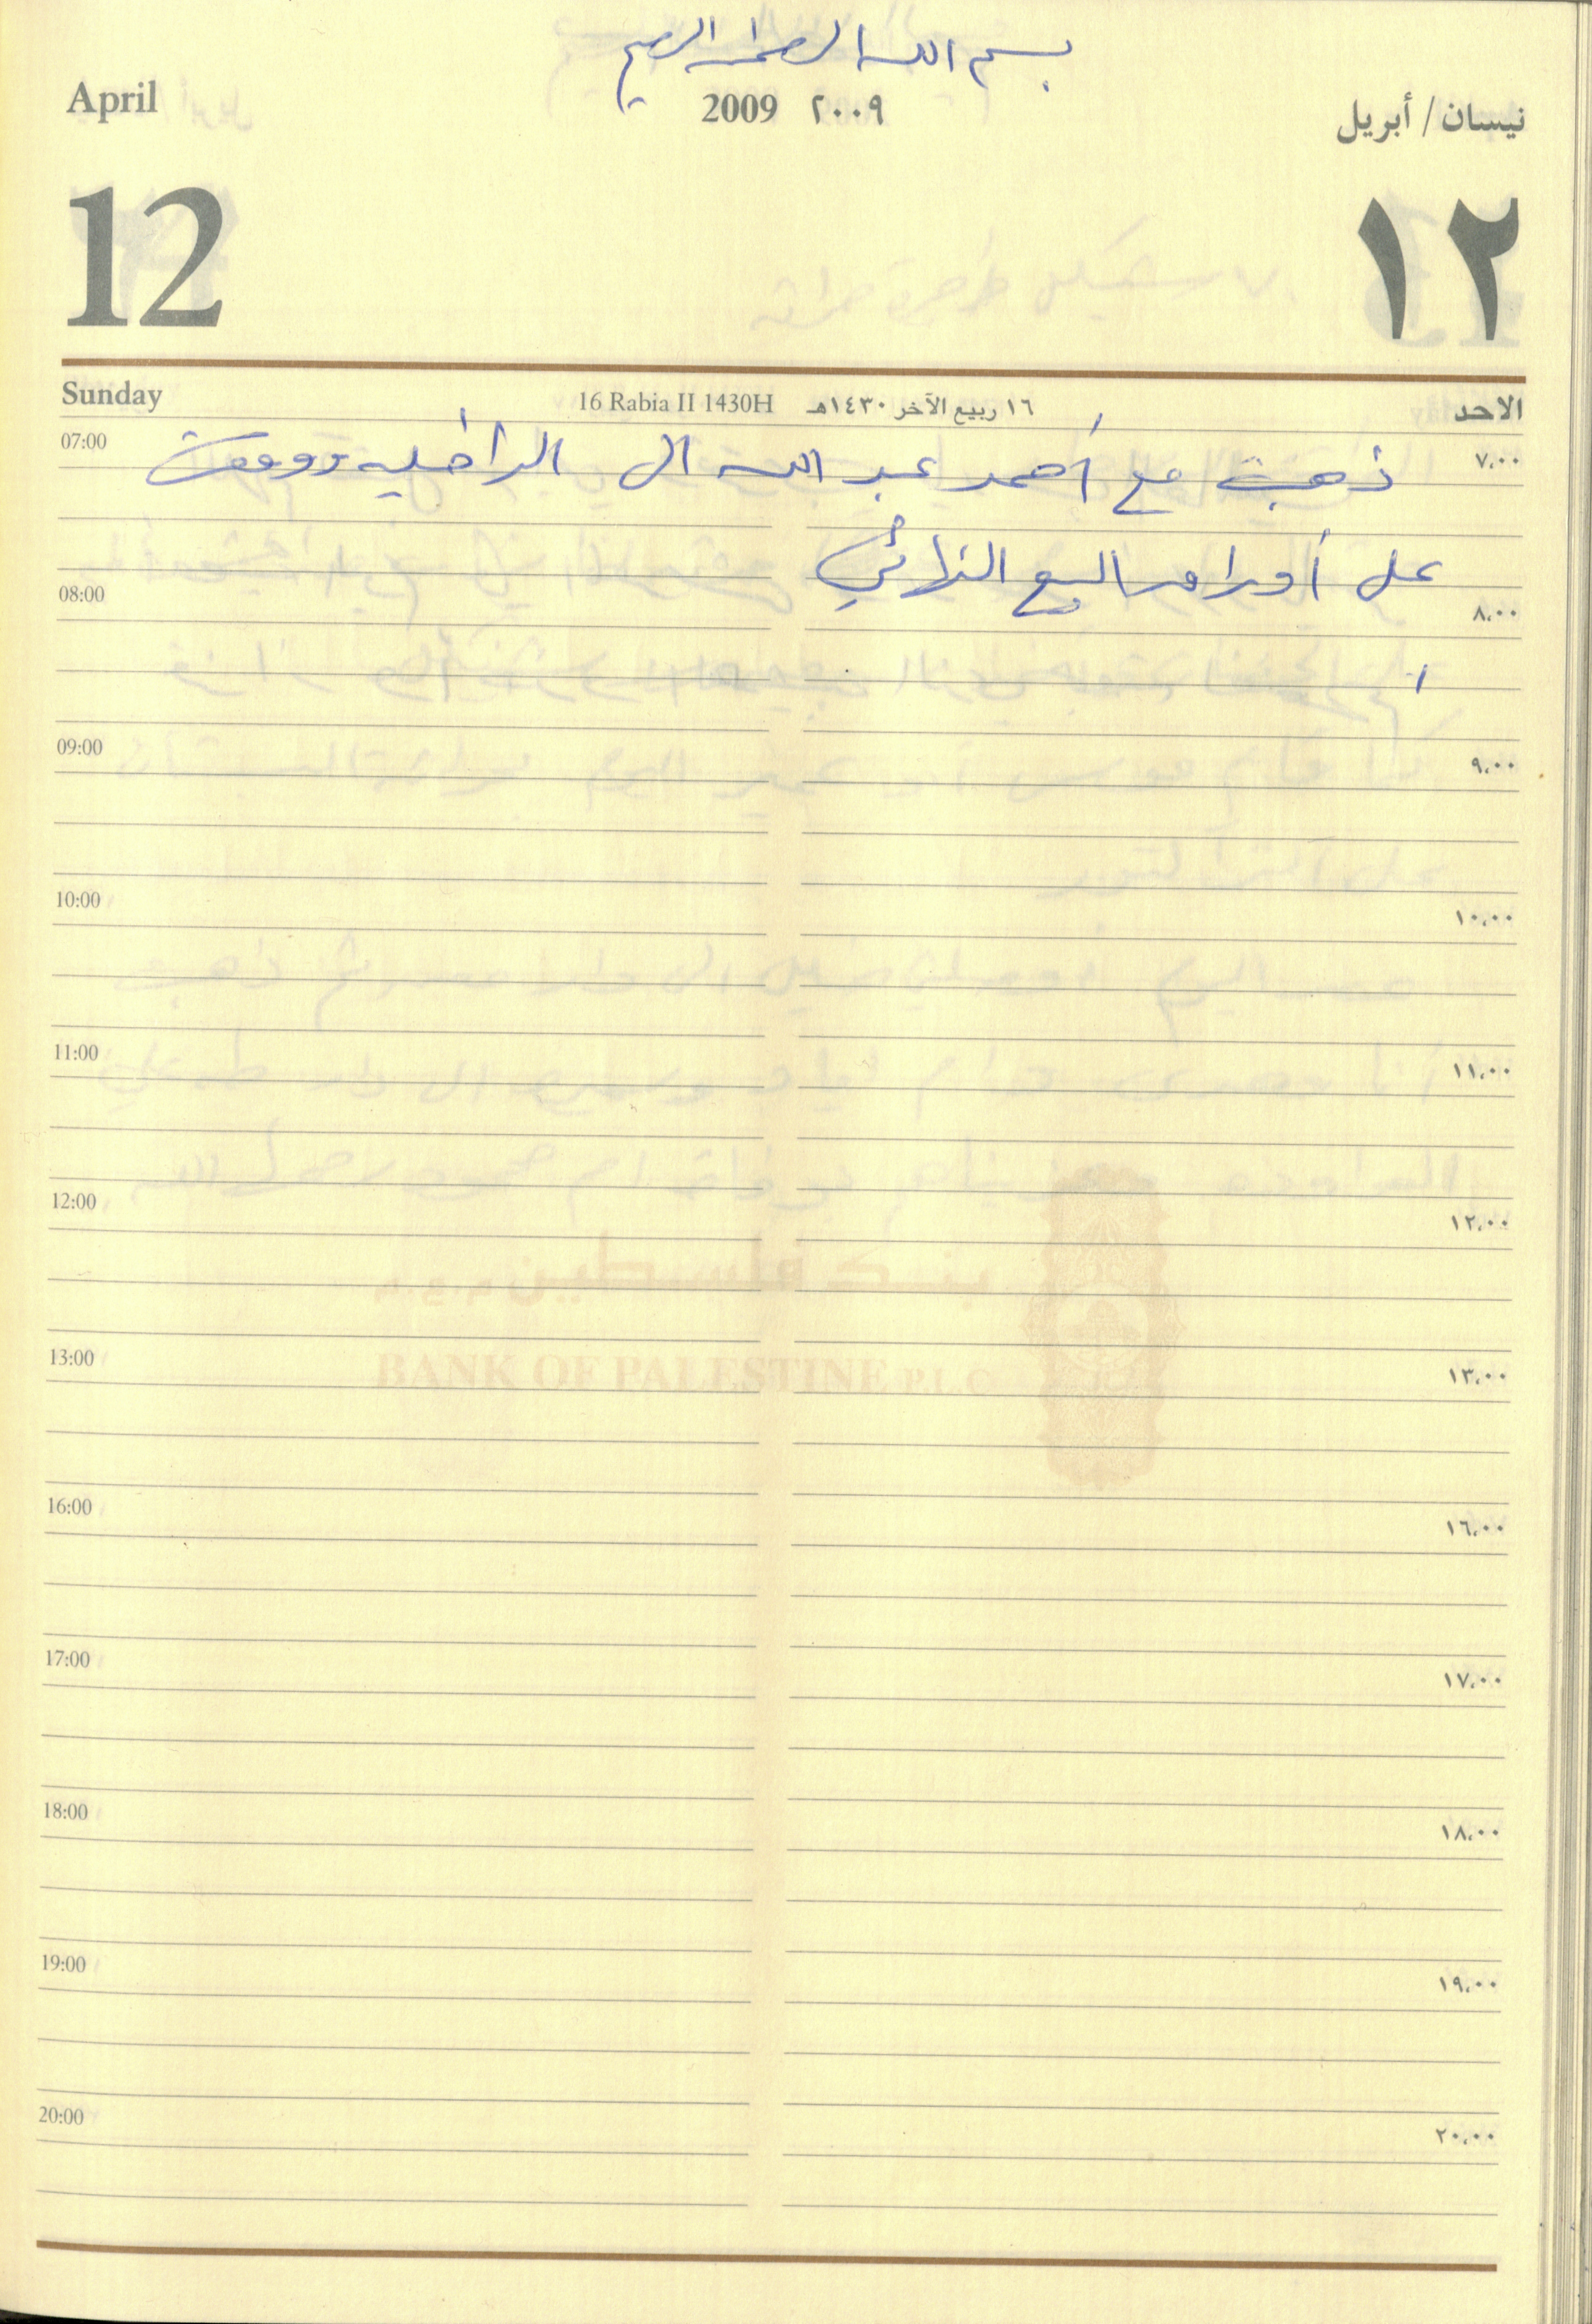 بسم الله الرحمن الرحيم
April 2009 ٢٠٠٩ نيسان / أبريل
12 ١٢
Sunday 16 Rabia II 1430H ١٦ ربيع الآخر ١٤٣٠هـ الاحد
07:00 ٧،٠٠
ذهبت مع أحمد عبد الله الى الداخليه ووقعت
على أوراق البيع النهائي
08:00 ٨،٠٠
09:00 ٩،٠٠
10:00 ١٠،٠٠
11:00 ١١،٠٠
12:00 ١٢،٠٠
بنك فلسطين م.ع.م
BANK OF PALESTINE P.L.C
13:00 ١٣،٠٠
16:00 ١٦،٠٠
17:00 ١٧،٠٠
18:00 ١٨،٠٠
19:00 ١٩،٠٠
20:00 ٢٠،٠٠